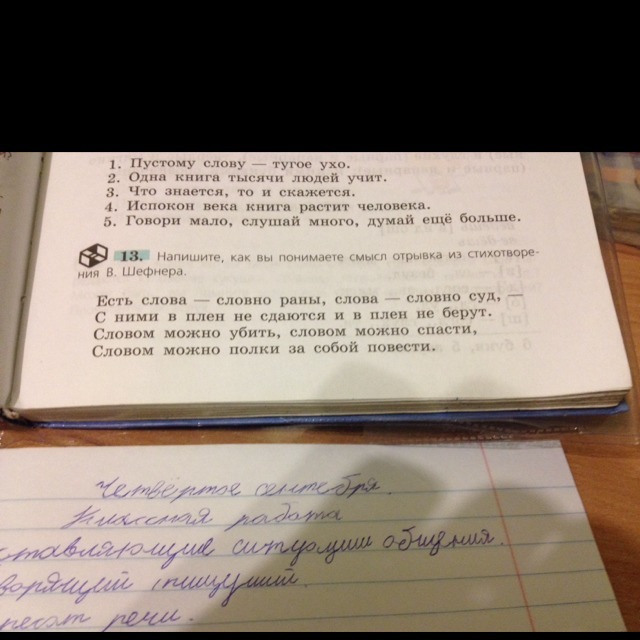 1. Пустому слову — тугое ухо.
2. Одна книга тысячи людей учит.
3. Что знается, то и скажется.
4. Испокон века книга растит человека.
5. Говори мало, слушай много, думай ещё больше.
13. Напишите, как вы понимаете смысл отрывка из стихотворе-
ния В. Шефнера.
Есть слова — словно раны, слова — словно суд, —
С ними в плен не сдаются и в плен не берут.
Словом можно убить, словом можно спасти,
Словом можно полки за собой повести.
Четвёртое сентября.
Классная работа
ставляющие ситуации общения.
ворящий пишущий.
речи.